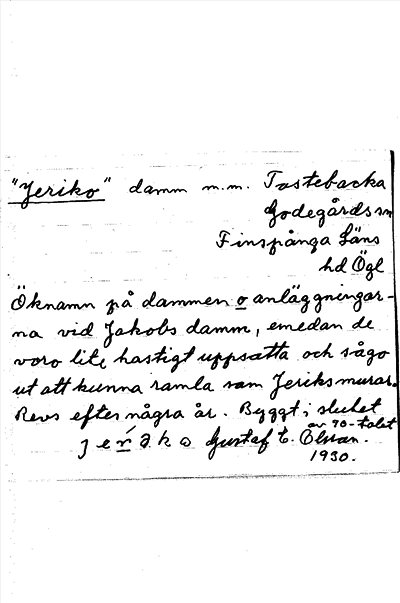 "Jeriko" damm m.m. Tostebacka
Godegårds sn
Finspånga Läns
hd Ögl
Öknamn på dammen o anläggningar-
na vid Jakobs damm, emedan de
voro lite hastigt uppsatta och sågo
ut att kunna ramla som Jeriks murar.
Revs efter några år. Byggt i slutet
av 70-talet
Gustaf E. Olsson.
1930.